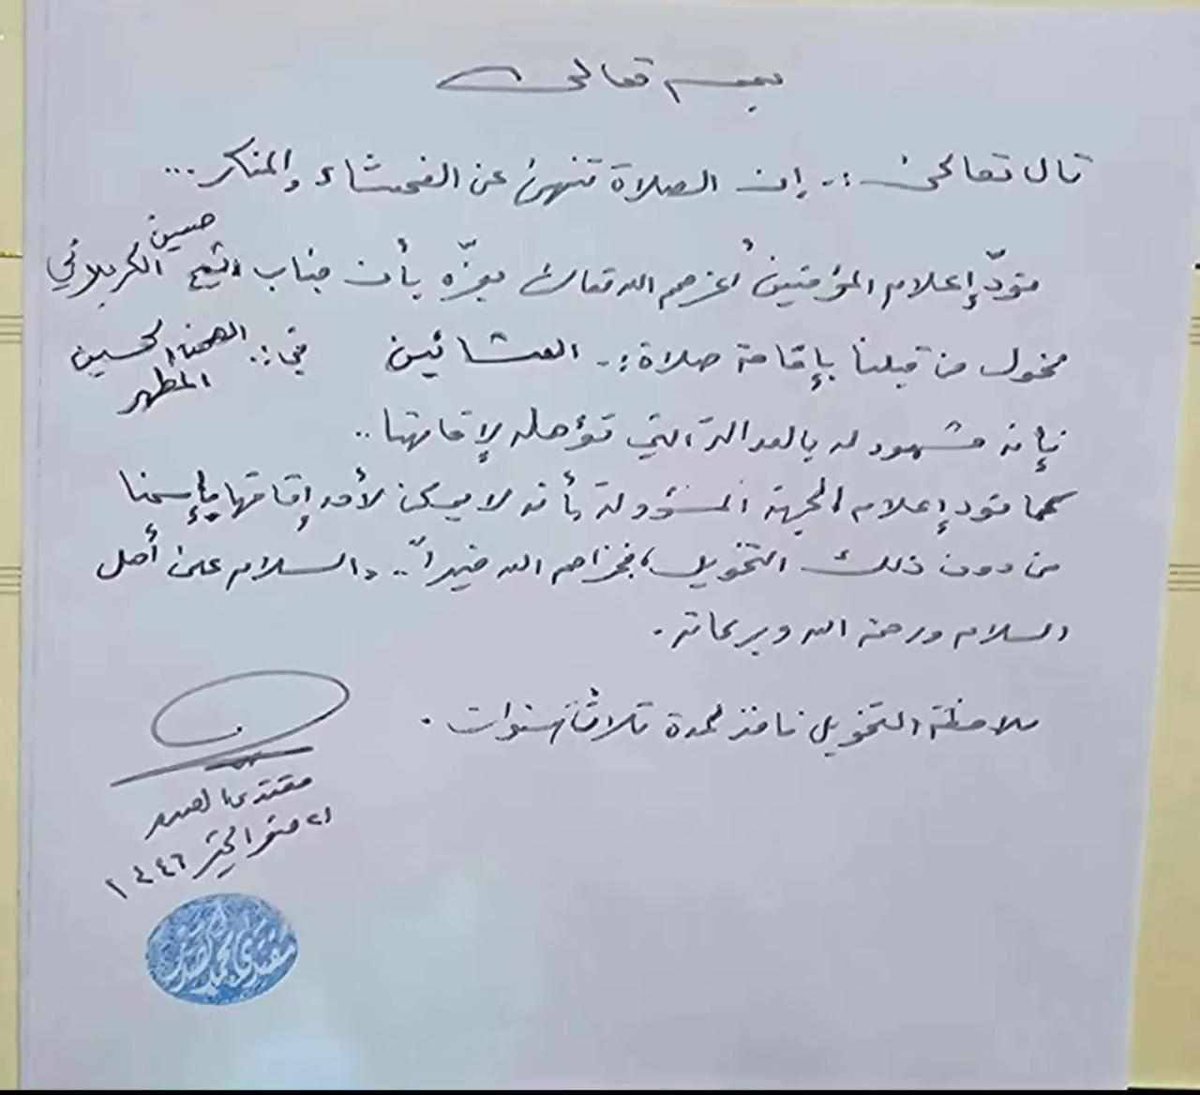 بسمه تعالى
قال تعالى :ـ إن الصلاة تنهى عن الفحشاء والمنكر...
نودّ إعلام المؤمنين أعزهم الله تعالى بعزّه بأن جناب الشيخ حسين الكربلائي
مخول من قبلنا بإقامة صلاة :ـ العشائين في :. الصحن الحسيني المطهر
فإنه مشهود له بالعدالة التي تؤهله لإقامتها ..
كما نود إعلام الجهة المسؤولة بأنه لا يمكن لأحد إقامتها بإسمنا
من دون ذلك التخويل، فجزاهم الله خيراً .. والسلام على أهل
السلام ورحمة الله وبركاته .
ملاحظة التخويل نافذ لمدة ثلاث سنوات .
مقتدى الصدر
صفر الخير ١٤٤٦
مقتدى محمد الصدر